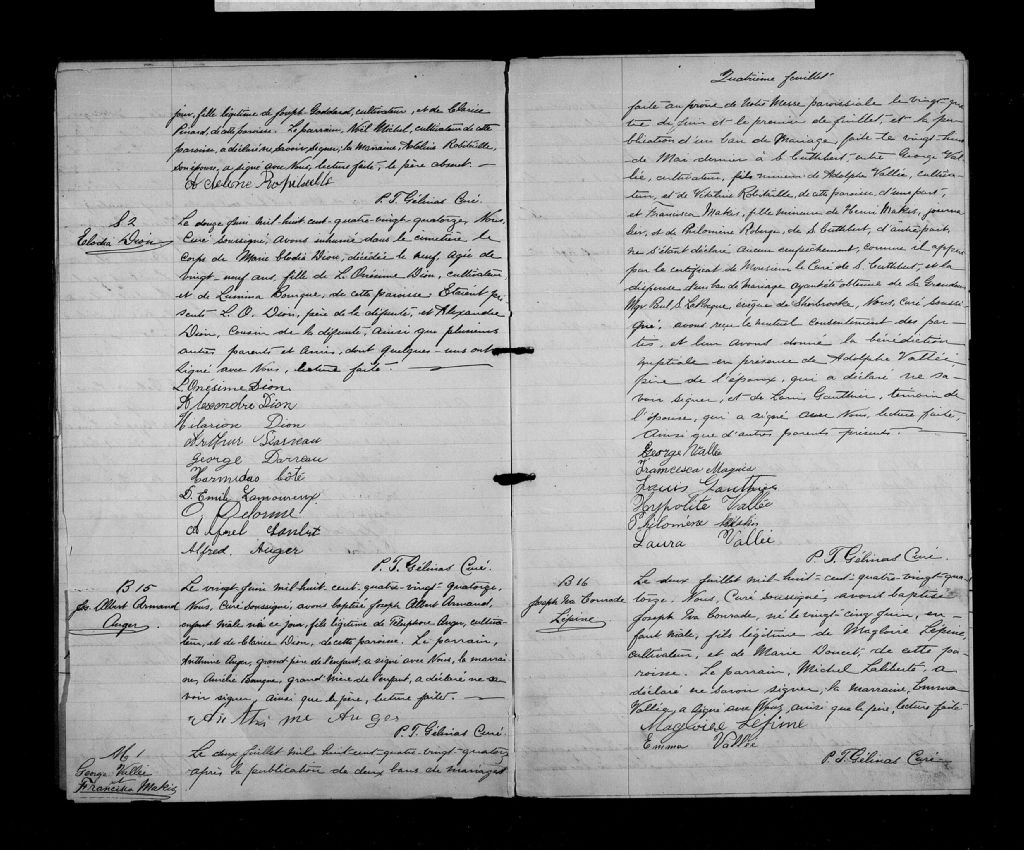 jour, fille légitime de Joseph Godbout, cultivateur, et de Clarice
Pinard, de cette paroisse. Le parrain, Noël Michel, cultivateur de cette
paroisse, a déclaré ne savoir signer; la marraine, Adeline Robitaille,
son épouse, a signé avec Nous, lecture faite, le père absent.
Adeline Robitaille
P. T. Gélinas Curé.
S. 2
Elodia Dion
Le douze Juin mil-huit-cent-quatre-vingt-quatorze, Nous,
Curé soussigné, avons inhumé dans le cimetière le
corps de Marie Elodia Dion, décédée le neuf, agée de
vingt-neuf ans, fille de L. Onésime Dion, cultivateur
et de Lumina Bourque, de cette paroisse. Etaient pré-
sents L. O. Dion, père de la défunte, et Alexandre
Dion, cousin de la défunte, ainsi que plusieurs
autres parents et amis, dont quelques-uns ont
signé avec Nous, lecture faite.
L. Onésime Dion
Alexandre Dion
Hilarion Dion
Arthur
George Darreau
Hormidas Côté
D. Emile Lamoureux
O Delorme
Alfred Auger
P. T. Gélinas Curé.
B 15
Jos. Albert Armand
Auger
Le vingt Juin mil-huit-cent-quatre-vingt-quatorze,
Nous, Curé soussigné, avons baptisé Joseph Albert Armand,
enfant mâle né ce jour, fils légitime de Télesphore Auger, cultiva-
teur, et de Clarice Dion, de cette paroisse. Le parrain,
Anthime Auger, grand'père de l'enfant, a signé avec Nous, la marrai-
ne, Aurélie Bourque, grand'mère de l'enfant, a déclaré ne sa-
voir signer, ainsi que le père, lecture faite.
Anthime Auger
P. T. Gélinas Curé.
M 1
George Vallée
et
Francisca Makis
Le deux Juillet mil-huit-cent-quatre-vingt-quatorze
après la publication de deux bans de mariage
Quatrième feuillet
faite au prône de Notre Messe paroissiale le vingt-qua-
tre de Juin et le premier de Juillet, et la pu-
blication d'un ban de Mariage, faite le vingt-
de Mai dernier à S. Cuthbert, entre George Val-
lée, cultivateur, fils mineur de Adolphe Vallée, cultiva-
teur, et de Vitaline Robitaille, de cette paroisse, d'une part,
et Francisca Makis, fille mineure de Henri Makis, journa-
lier, et de Philomène Roberge, de S. Cuthbert, d'autre part,
ne s'étant déclaré aucun empêchement, comme il appert
par le certificat de Monsieur le Curé de S. Cuthbert, et la
dispense d'un ban de mariage ayant été obtenue de Sa Grandeur
Mgr Paul S. LaRocque évêque de Sherbrooke, Nous, Curé soussi-
gné, avons reçu le mutuel consentement des par-
ties, et leur avons donné la bénédiction
nuptiale en présence de Adolphe Vallée,
père de l'époux, qui a déclaré ne sa-
voir signer, et de Louis Gauthier, témoin de
l'épouse, qui a signé avec Nous, lecture faite,
ainsi que d'autres parents présents.
George Vallée
Francesca Maquis
Louis Gauthier
Hypolite Vallée
Philomène Makis
Laura Vallée
P. T. Gélinas Curé.
B 16
Joseph Iva Conrade
Lépine
Le deux Juillet mil-huit-cent-quatre-vingt-qua-
torze, Nous, Curé soussigné, avons baptisé
Joseph Iva Conrade, né le vingt-cinq Juin, en-
fant mâle, fils légitime de Magloire Lépine,
cultivateur, et de Marie Doucet, de cette pa-
roisse. Le parrain, Michel Laliberté, a
déclaré ne savoir signer, la marraine, Emma
Vallée, a signé avec Nous, ainsi que le père, lecture faite.
Magloire Lépine
Emma Vallée
P. T. Gélinas Curé